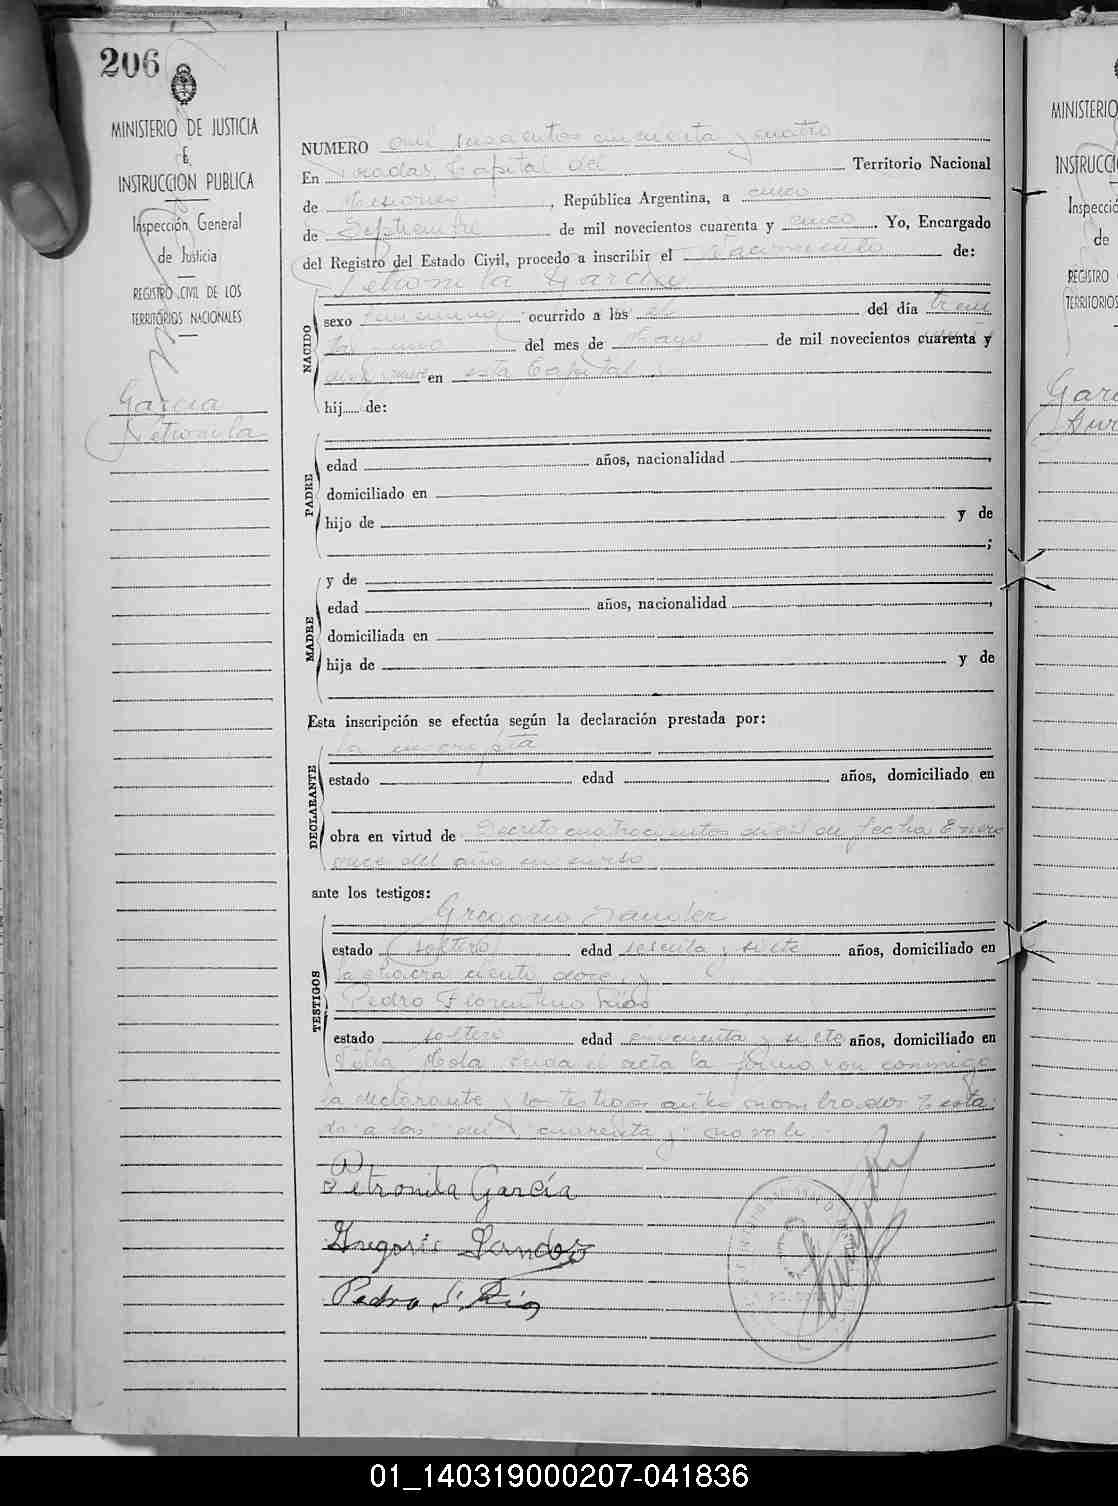 206
MINISTERIO DE JUSTICIA
E
INSTRUCCION PUBLICA
Inspección General
de Justicia
REGISTRO CIVIL DE LOS
TERRITORIOS NACIONALES
García
Petronila
NUMERO mil cincuenta y cuatro
En Posadas, Capital del Territorio Nacional
de Misiones, República Argentina, a cinco
de Septiembre de mil novecientos cuarenta y cinco. Yo, Encargado
del Registro del Estado Civil, procedo a inscribir el nacimiento de:
Petronila García
NACIDO
sexo femenino ocurrido a las del día trein
ta y uno del mes de Mayo de mil novecientos cuarenta y
en esta Capital
hij de:
PADRE
edad años, nacionalidad
domiciliado en
hijo de y de
;
MADRE
y de
edad años, nacionalidad
domiciliada en
hija de y de
Esta inscripción se efectúa según la declaración prestada por:
DECLARANTE
la inscripta
estado edad años, domiciliado en
obra en virtud de Decreto cuatrocientos de fecha Enero
once del año en curso
ante los testigos:
TESTIGOS
Gregorio Sander
estado soltero edad sesenta y siete años, domiciliado en
la chacra ciento doce y
Pedro Florentino Ríos
estado soltero edad cincuenta y siete años, domiciliado en
Villa Leida el acta la firmaron conmigo
la declarante y los testigos antes nombrados Testa
do "a las" "del" "cuarenta y" no vale.
Petronila García
Gregorio Sander
Pedro F. Ríos
MINISTERIO
INSTRUCCI
Inspecció
de
REGISTRO
TERRITORIOS
Gar
01_140319000207-041836